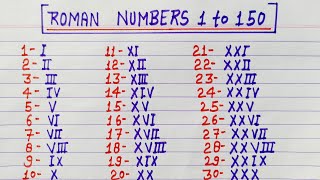 ROMAN NUMBERS 1 to 150
1- I 11- XI 21- XXI
2- II 12- XII 22- XXII
3- III 13- XIII 23- XXIII
4- IV 14- XIV 24- XXIV
5- V 15- XV 25- XXV
6- VI 16- XVI 26- XXVI
7- VII 17- XVII 27- XXVII
8- VIII 18- XVIII 28- XXVIII
9- IX 19- XIX 29- XXIX
10- X 20- XX 30- XXX